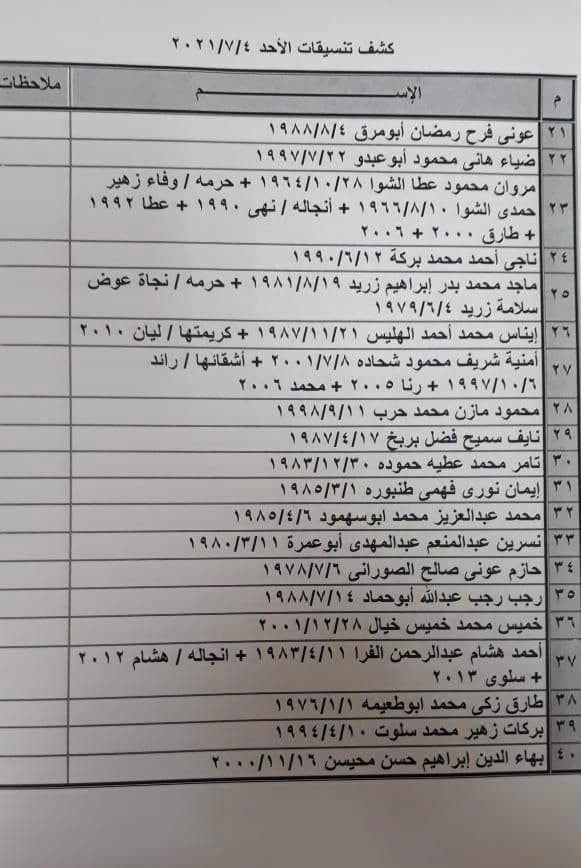 كشف تنسيقات الأحد ٢٠٢١/٧/٤
م الإســـــــم ملاحظات
٢١ عونى فرح رمضان أبومرق ١٩٨٨/٨/٤
٢٢ ضياء هانى محمود أبوعبدو ١٩٩٧/٧/٢٢
مروان محمود عطا الشوا ١٩٦٤/١٠/٢٨ + حرمه / وفاء زهير
٢٣ حمدى الشوا ١٩٦٦/٨/١٠ + أنجاله / نهى ١٩٩٠ + عطا ١٩٩٢
+ طارق ٢٠٠٠ + ٢٠٠٦
٢٤ ناجى أحمد محمد بركة ١٩٩٠/٦/١٢
٢٥ ماجد محمد بدر إبراهيم زريد ١٩٨١/٨/١٩ + حرمه / نجاة عوض
سلامة زريد ١٩٧٩/٦/٤
٢٦ إيناس محمد أحمد الهليس ١٩٨٧/١١/٢١ + كريمتها / ليان ٢٠١٠
٢٧ أمنية شريف محمود شحاده ٢٠٠١/٧/٨ + أشقائها / رائد
١٩٩٧/١٠/٦ + رنا ٢٠٠٥ + محمد ٢٠٠٦
٢٨ محمود مازن محمد حرب ١٩٩٨/٩/١١
٢٩ نايف سميح فضل بربخ ١٩٨٧/٤/١٧
٣٠ تامر محمد عطيه حموده ١٩٨٣/١٢/٣٠
٣١ إيمان نورى فهمى طنبوره ١٩٨٥/٣/١
٣٢ محمد عبدالعزيز محمد ابوسهمود ١٩٨٥/٤/٦
٣٣ نسرين عبدالمنعم عبدالمهدى أبوعمرة ١٩٨٠/٣/١١
٣٤ حازم عونى صالح الصورانى ١٩٧٨/٧/٦
٣٥ رجب رجب عبدالله أبوحماد ١٩٨٨/٧/١٤
٣٦ خميس محمد خميس خيال ٢٠٠١/١٢/٢٨
٣٧ أحمد هشام عبدالرحمن الفرا ١٩٨٣/٤/١١ + انجاله / هشام ٢٠١٢
+ سلوى ٢٠١٣
٣٨ طارق زكى محمد ابوطعيمه ١٩٧٦/١/١
٣٩ بركات زهير محمد سلوت ١٩٩٤/٤/١٠
٤٠ بهاء الدين إبراهيم حسن محيسن ٢٠٠٠/١١/١٦